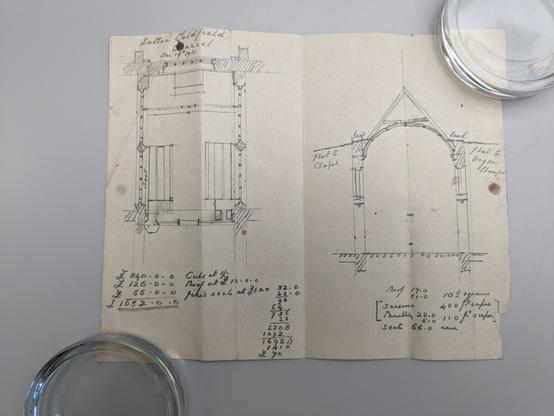 Sutton Coldfield
Chancel
Dec 19th 1911
lead
flat to
Chapel
flat to
Organ
Chamber
£ 840-0-0 Cube at 1/-
£ 126-0-0 Roof at £12.0.0
£ 66-0-0 fixed seats at £1.0.0
£ 1032.0.0
32.0
23.0
96
64
736
23
2208
1472
£ 70
Roof 17.0
10½ squares
Screens 400 ft super
Panelling 22.0
5.0
110 ft super
Seats 66.0